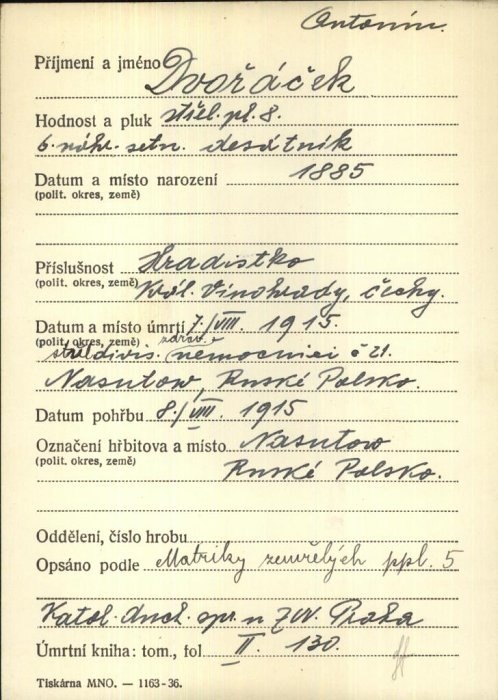 Antonín.
Příjmení a jméno Dvořáček
Hodnost a pluk střel. pl. 8.
6. náhr. setn. desátník
Datum a místo narození 1885
(polit. okres, země)
Příslušnost Hradistko
(polit. okres, země) Král. Vinohrady, čechy.
Datum a místo úmrtí 7./VIII. 1915.
(polit. okres, země) zdrav.
střel. divis. nemocnici č 21.
Nasutow, Ruské Polsko.
Datum pohřbu 8./VIII. 1915
Označení hřbitova a místo Nasutow
(polit. okres, země) Ruské Polsko.
Oddělení, číslo hrobu
Opsáno podle Matriky zemřelých ppl. 5
Katol. duch. spr. n ZVV. Praha
Úmrtní kniha: tom., fol II. 130.
Tiskárna MNO. — 1163-36.